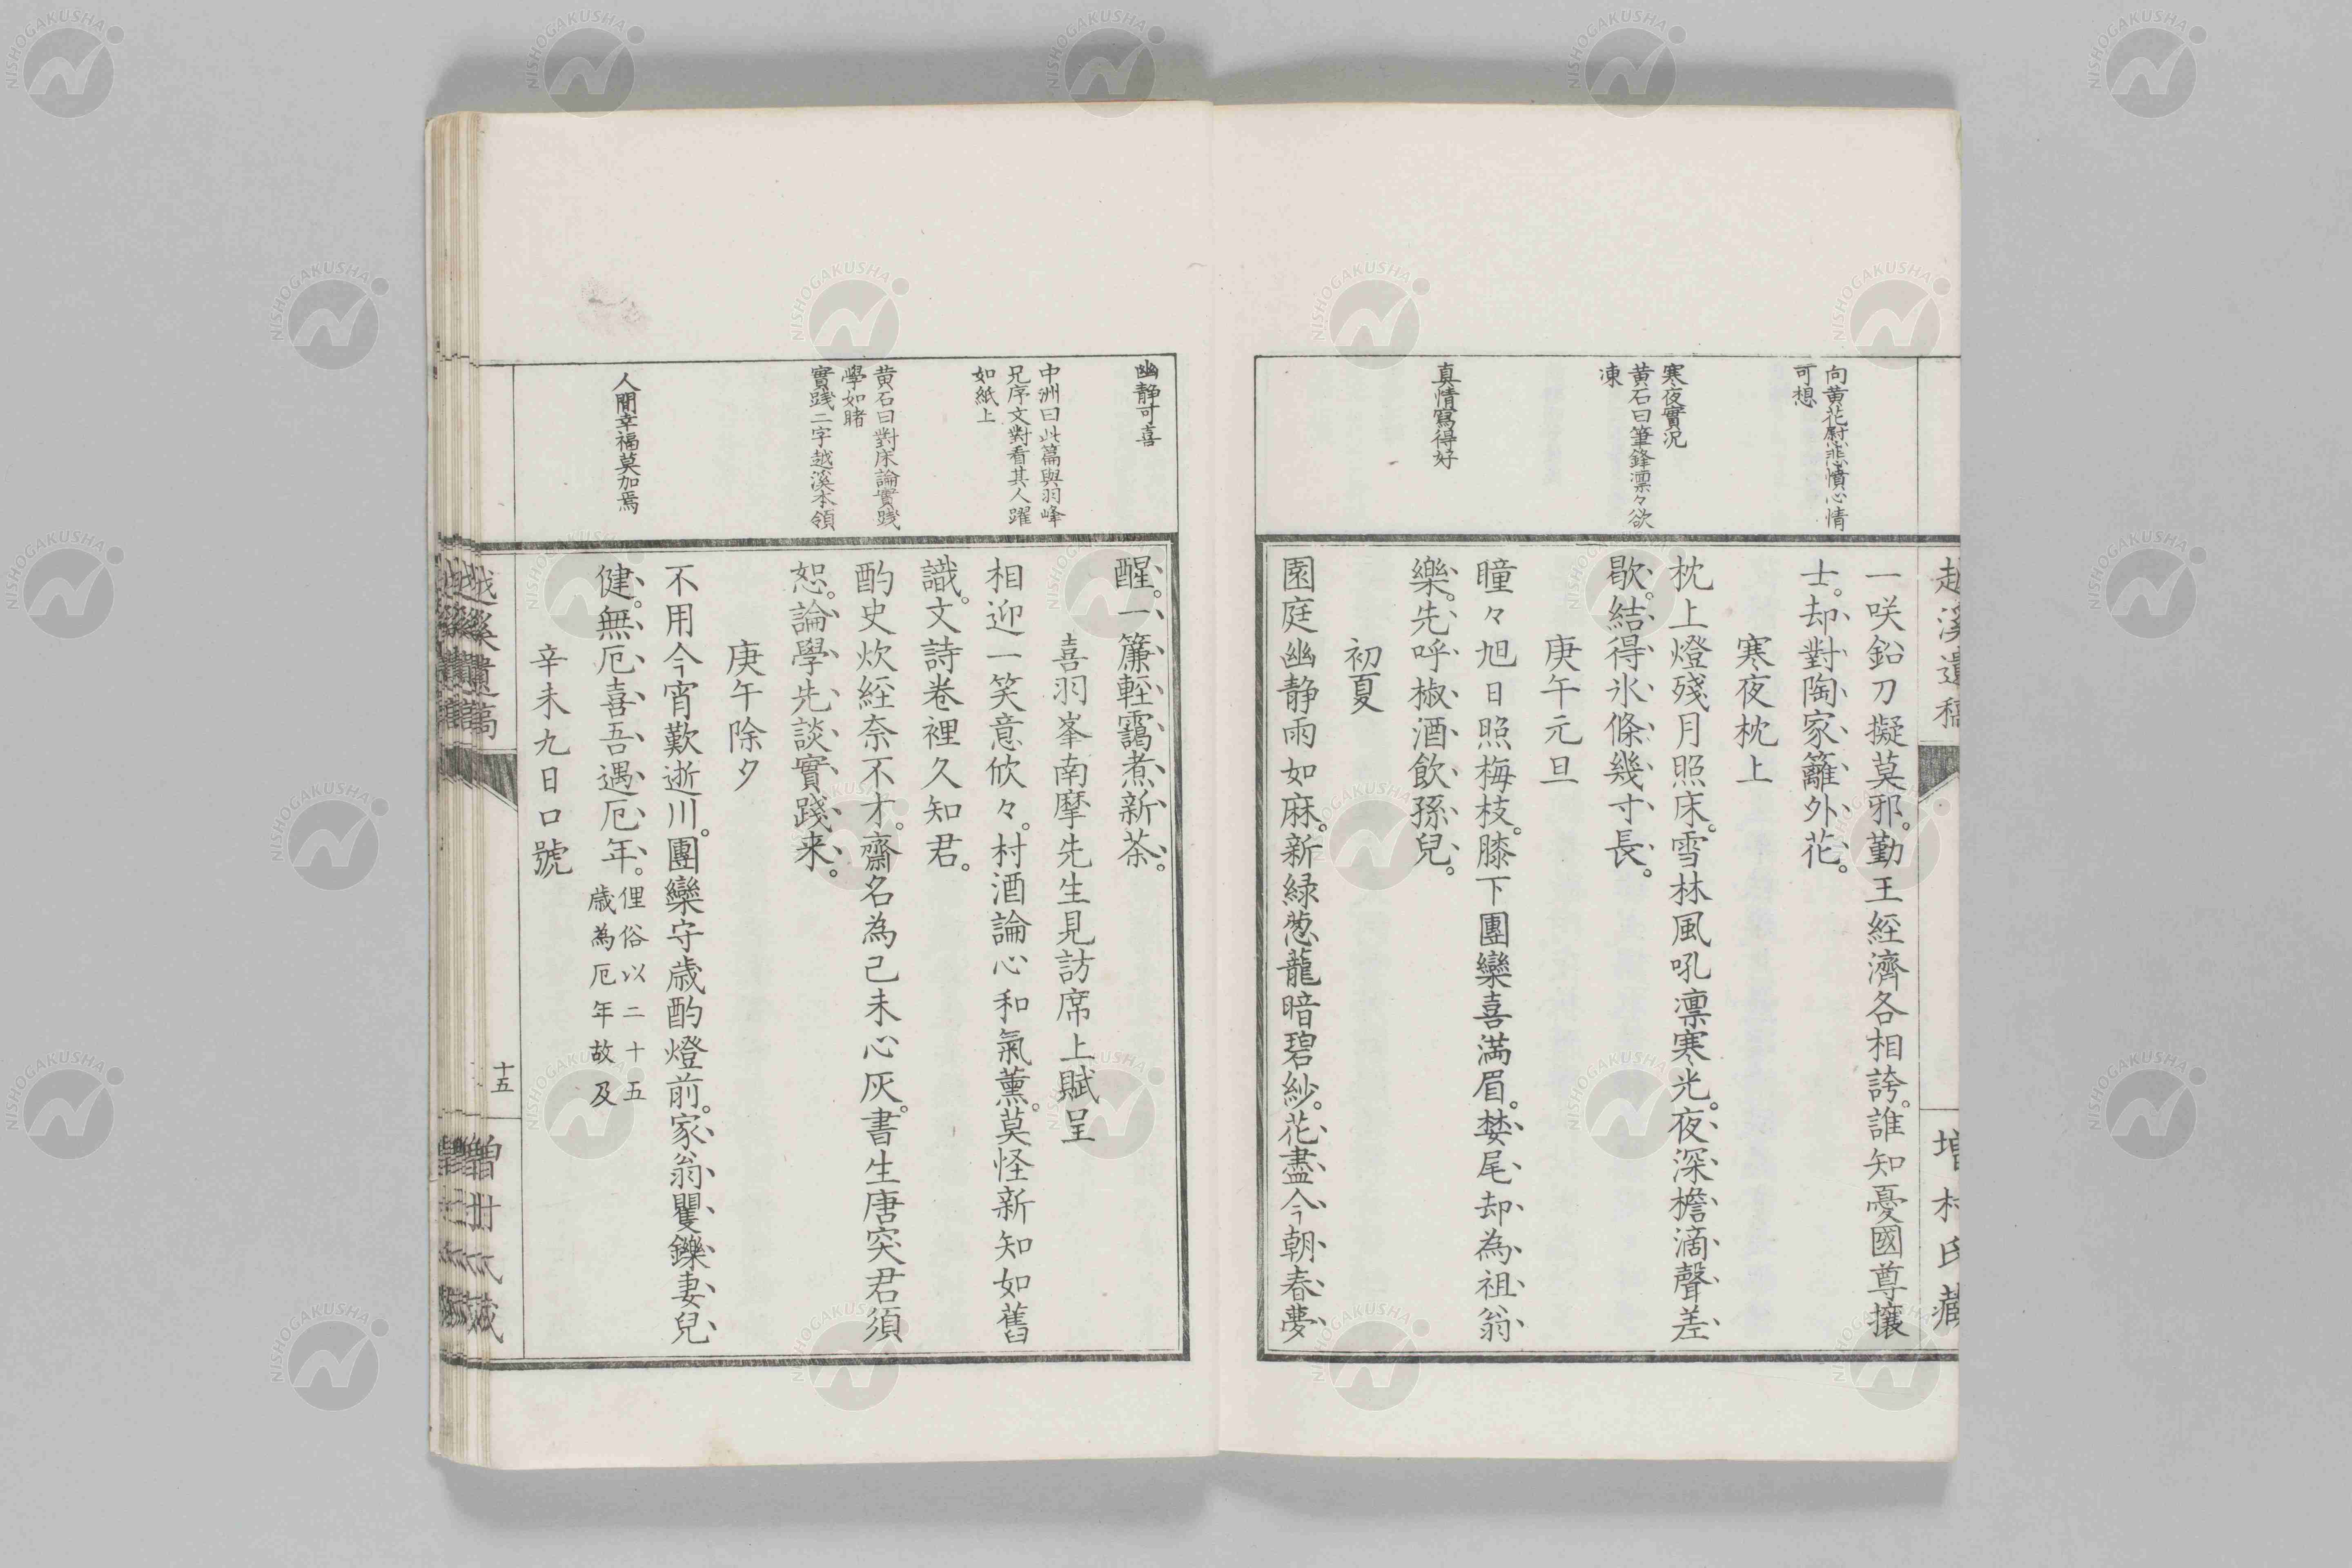 向黄花慰悲憤心情
可想
寒夜實況
黄石曰筆鋒凛々欲
凍
真情寫得好
一咲鉛刀擬莫邪。勤王經濟各相誇。誰知憂國尊攘
士。却對陶家籬外花。
寒夜枕上
枕上燈殘月照床。雪林風吼凛寒光。夜深檐滴聲差
歇。結得氷條幾寸長。
庚午元旦
瞳々旭日照梅枝。膝下團欒喜滿眉。婪尾却為祖翁
樂。先呼椒酒飲孫兒。
初夏
園庭幽静雨如麻。新緑葱蘢暗碧紗。花盡今朝春夢
越溪遺稿
増村氏藏
幽静可喜
中洲曰此篇與羽峰
兄序文對看其人躍
如紙上
黄石曰對床論實踐
學如睹
實踐二字越溪本領
人間幸福莫加焉
醒。一簾輕靄煮新茶。
喜羽峯南摩先生見訪席上賦呈
相迎一笑意欣々。村酒論心和氣薫。莫怪新知如舊
識。文詩卷裡久知君。
酌史炊經奈不才。齋名為己未心灰。書生唐突君須
恕。論學先談實踐来。
庚午除夕
不用今宵歎逝川。團欒守歳酌燈前。家翁矍鑠妻兒
健。無厄喜吾遇厄年。俚俗以二十五
歳為厄年故及
辛未九日口號
越溪遺稿
十五